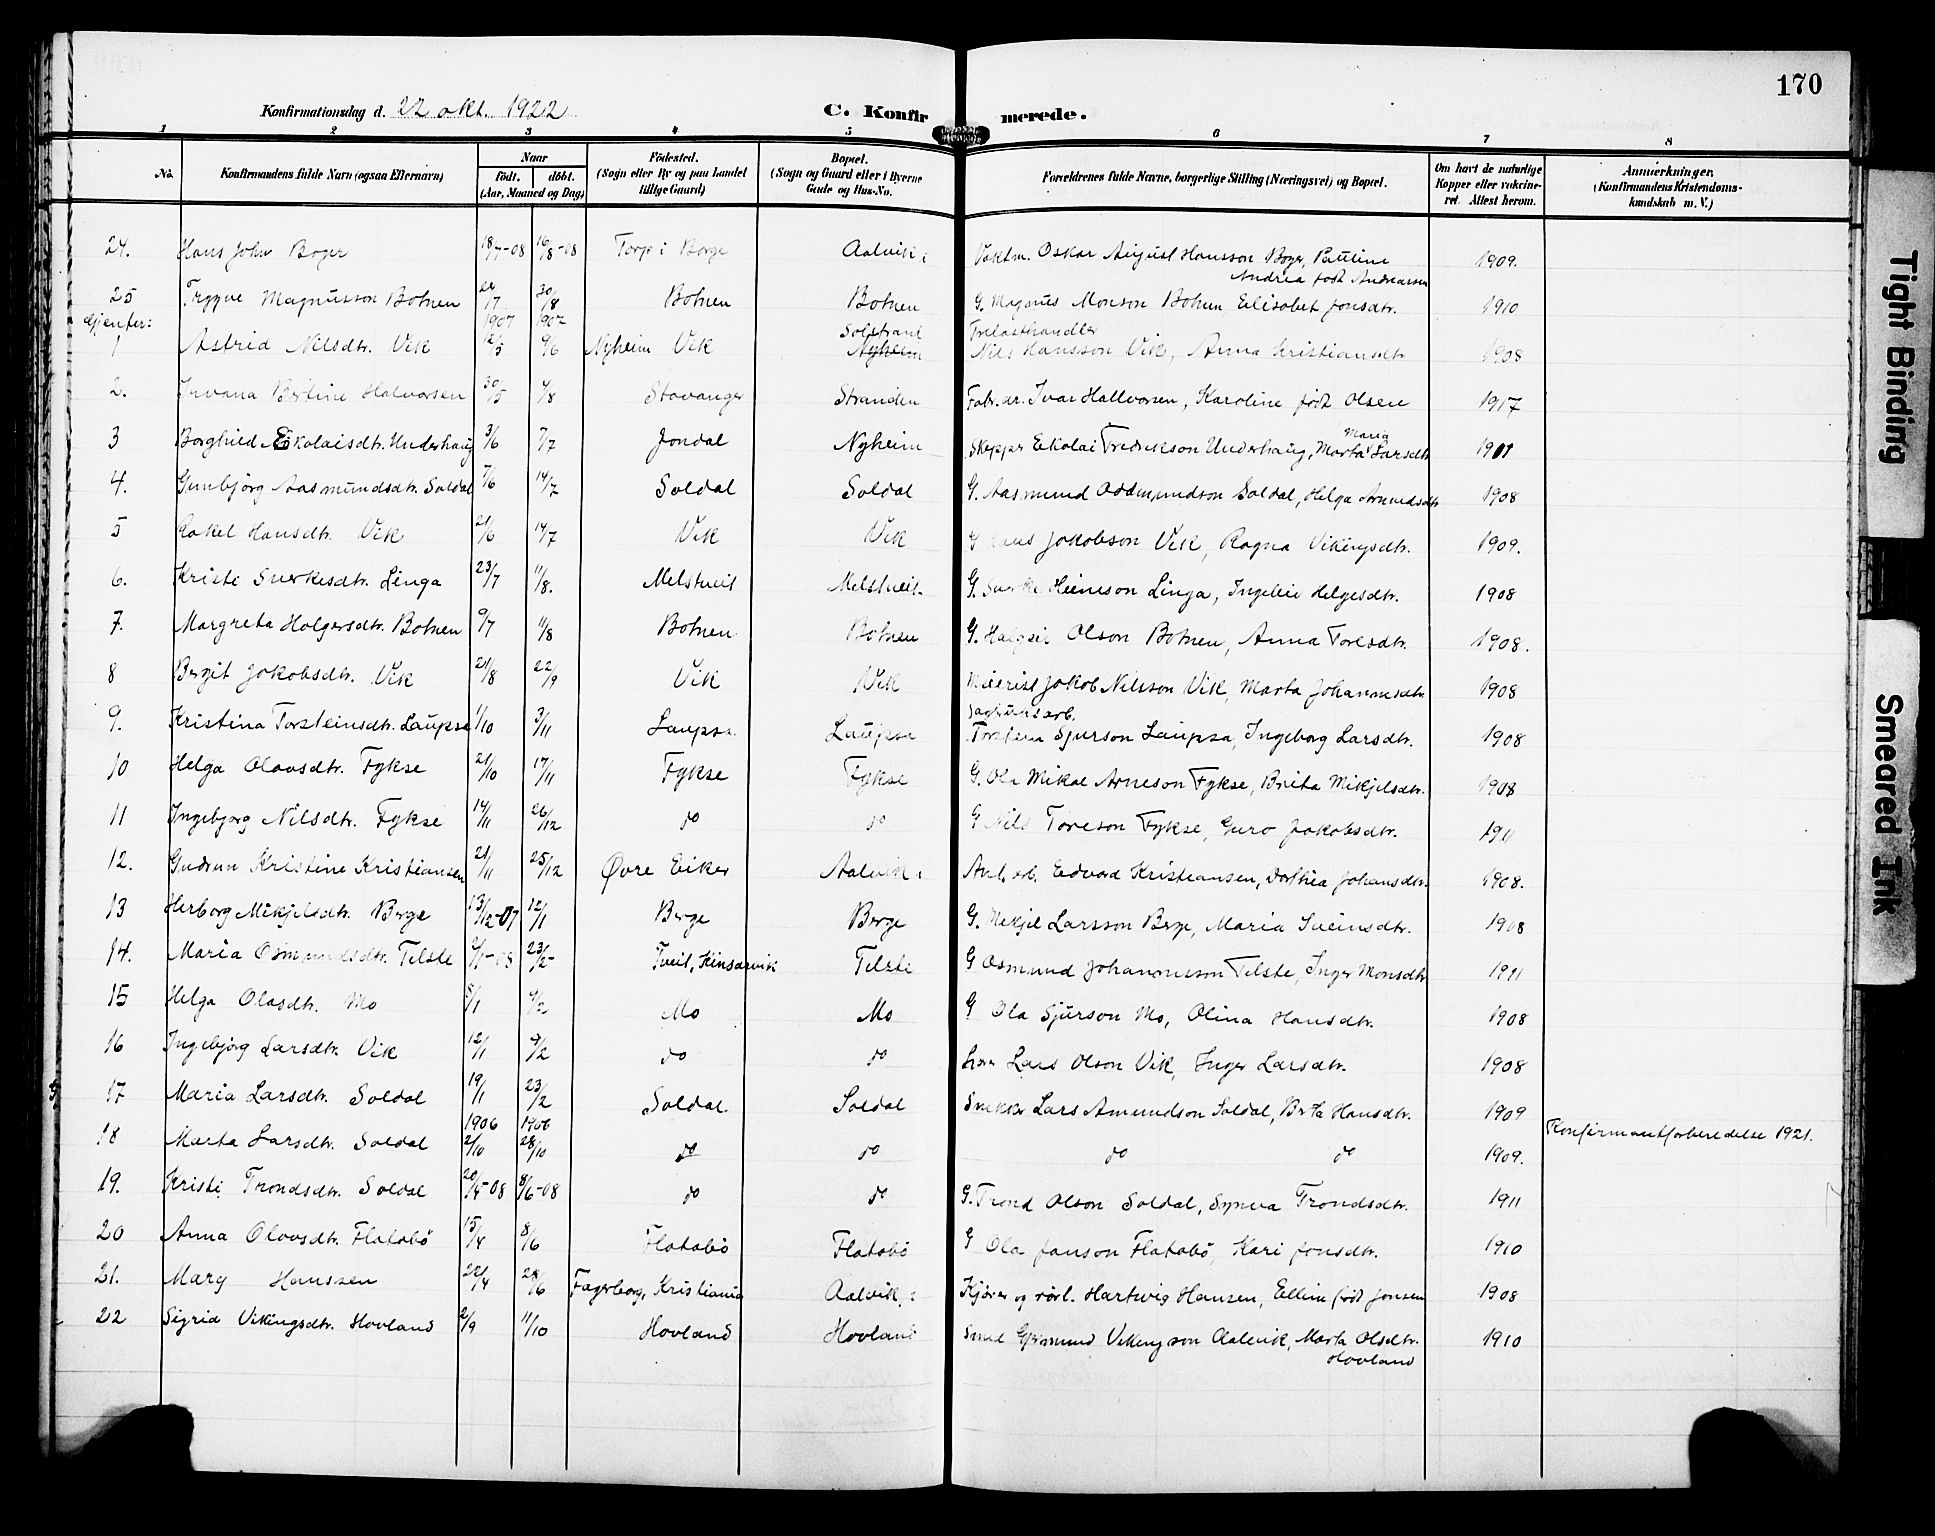 170
Konfirmationsdag d. 22 okt. 1922
C. Konfirmerede.
1 2 3 4 5 6 7 8
No. Konfirmandens fulde Navn (ogsaa Efternavn) Naar födt. döbt. (Aar, Maaned og Dag) Födested. (Sogn eller By og paa Landet tillige Gaard) Bopæl. (Sogn og Gaard eller i Byerne Gade og Hus-No. Forældrenes fulde Navne, borgerlige Stilling (Næringsvei) og Bopæl. Om havt de naturlige Kopper eller vakcineret. Attest herom. Anmærkninger, (Konfirmandens Kristendomskundskab m. V.)
24. Hans John Boger 18/7-08 16/8-08 Torp i Borge Aalvik Vaktm. Oskar August Hansson Boger, Pauline Andrea født Andreassen 1909.
25 Trygve Magnusson Botnen 30/8 Botnen Botnen G. Magnus Monson Botnen Elisabet Jonsdtr. 1910
Gjenter: 1907 1907 Solstrand Trelasthandler
1 Astrid Nilsdtr. Vik 12/5 9/6 Nyheim Vik Nyheim Nils Hansson Vik, Anna Kristiansdtr 1908
2. Ivana Bertine Halvorsen 30/5 4/8 Stavanger Stranden Fabr. ar. Ivar Hallvorsen, Karoline født Olsen 1917
3 Borghild Eikolaisdtr. Underhaug 3/6 7/7 Jondal Nyheim Skipper Eikolai Fredrikson Underhaug, Marta Maria Larsdtr 1911
4. Gunbjörg Aasmundsdtr. Soldal 7/6 14/7 Soldal Soldal G. Aasmund Oddmundson Soldal, Helga Amundsdtr 1908
5 Rakel Hansdtr. Vik 21/6 14/7 Vik Vik G Hans Jakobson Vik, Ragna Vikingsdtr. 1909.
6. Kristi Sverkesdtr. Linga 23/7 11/8. Melstveit Melstveit. G. Sverke Heineson Linga, Ingebie Helgesdtr. 1908
7. Margreta Holgersdtr. Botnen 9/7 11/8 Botnen Botnen G. Halgeir Olson Botnen, Anna Toresdtr. 1908.
8 Bergit Jakobsdtr. Vik 21/8 22/9 Vik Vik Jakob Nilsson Vik, Marta Johannesdtr 1908
9. Kristina Torsteinsdtr. Laupsa 1/10 3/11 Laupsa Laupsa Sagbruksarb. Torstein Sjurson Laupsa, Ingeborg Larsdtr. 1908
10 Helga Olavsdtr. Fykse 21/10 17/11 Fykse Fykse G. Ola Mikal Arneson Fykse, Brita Mikjelsdtr. 1908
11 Ingebjorg Nilsdtr. Fykse 14/11 26/12 do do G Nils Toreson Fykse, Guro Jakobsdtr. 1911
12. Gudrun Kristine Kristiansen 21/11 25/12 Øvre Eiker Aalvik Anl. arb. Edvard Kristiansen, Dorthea Johansdtr. 1908.
13 Herborg Mikjelsdtr. Berge 13/12-07 12/1 Berge Berge G. Mikjel Larsson Berge, Maria Sveinsdtr. 1908
14. Maria Osmundsdtr. Telste 2/1-08 23/2- Tveit, Kinsarvik Telste G Osmund Johannesson Telste, Inger Monsdtr 1911
15 Helga Olasdtr. Mo 5/1 9/2 Mo Mo G Ola Sjurson Mo, Olina Hansdtr. 1908
16 Ingebjørg Larsdtr. Vik 12/1 9/2 do do Lars Olson Vik, Inger Larsdtr. 1908
17 Maria Larsdtr. Soldal 19/1 23/2 Soldal. Soldal Snekker Lars Amundson Soldal, Brita Hansdtr. 1909
18 Marta Larsdtr. Soldal 1906 2/10 1906 28/10 do do do do 1909. Konfirmantforberedelse 1921.
19. Kristi Trondsdtr. Soldal 20/4-08 8/6-08 do do G. Trond Olson Soldal, Synva Trondsdtr. 1911
20 Anna Olavsdtr. Flatabö 15/4 8/6 Flatabö Flatabö G Ola Janson Flatabö, Kari Jonsdtr. 1910
21. Mary Hanssen 22/4 28/6 Fagerborg, Kristiania Aalvik Kjörer og rørl. Hartwig Hansen, Elline født Jonsen 1908
22 Sigrid Vikingsdtr. Hovland 2/9 11/10 Hovland Hovland Smed Gjermund Vikingson Aalvik, Marta Olsdtr. Hovland 1910
Tight Binding
Smeared Ink